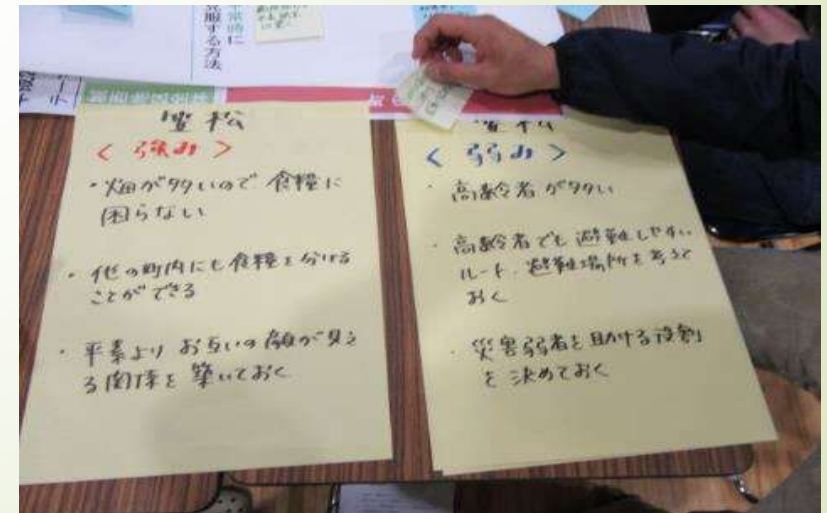 常時に
克服する方法
笠松
< 強み >
・畑が多いので 食糧に
困らない
・他の町内にも食糧を分ける
ことができる
・平素より お互いの顔が見え
る関係を築いておく
笠松
< 弱み >
・高齢者が多い
・高齢者でも避難しやすい
ルート、避難場所を考えて
おく
・災害弱者を助ける役割
を決めておく